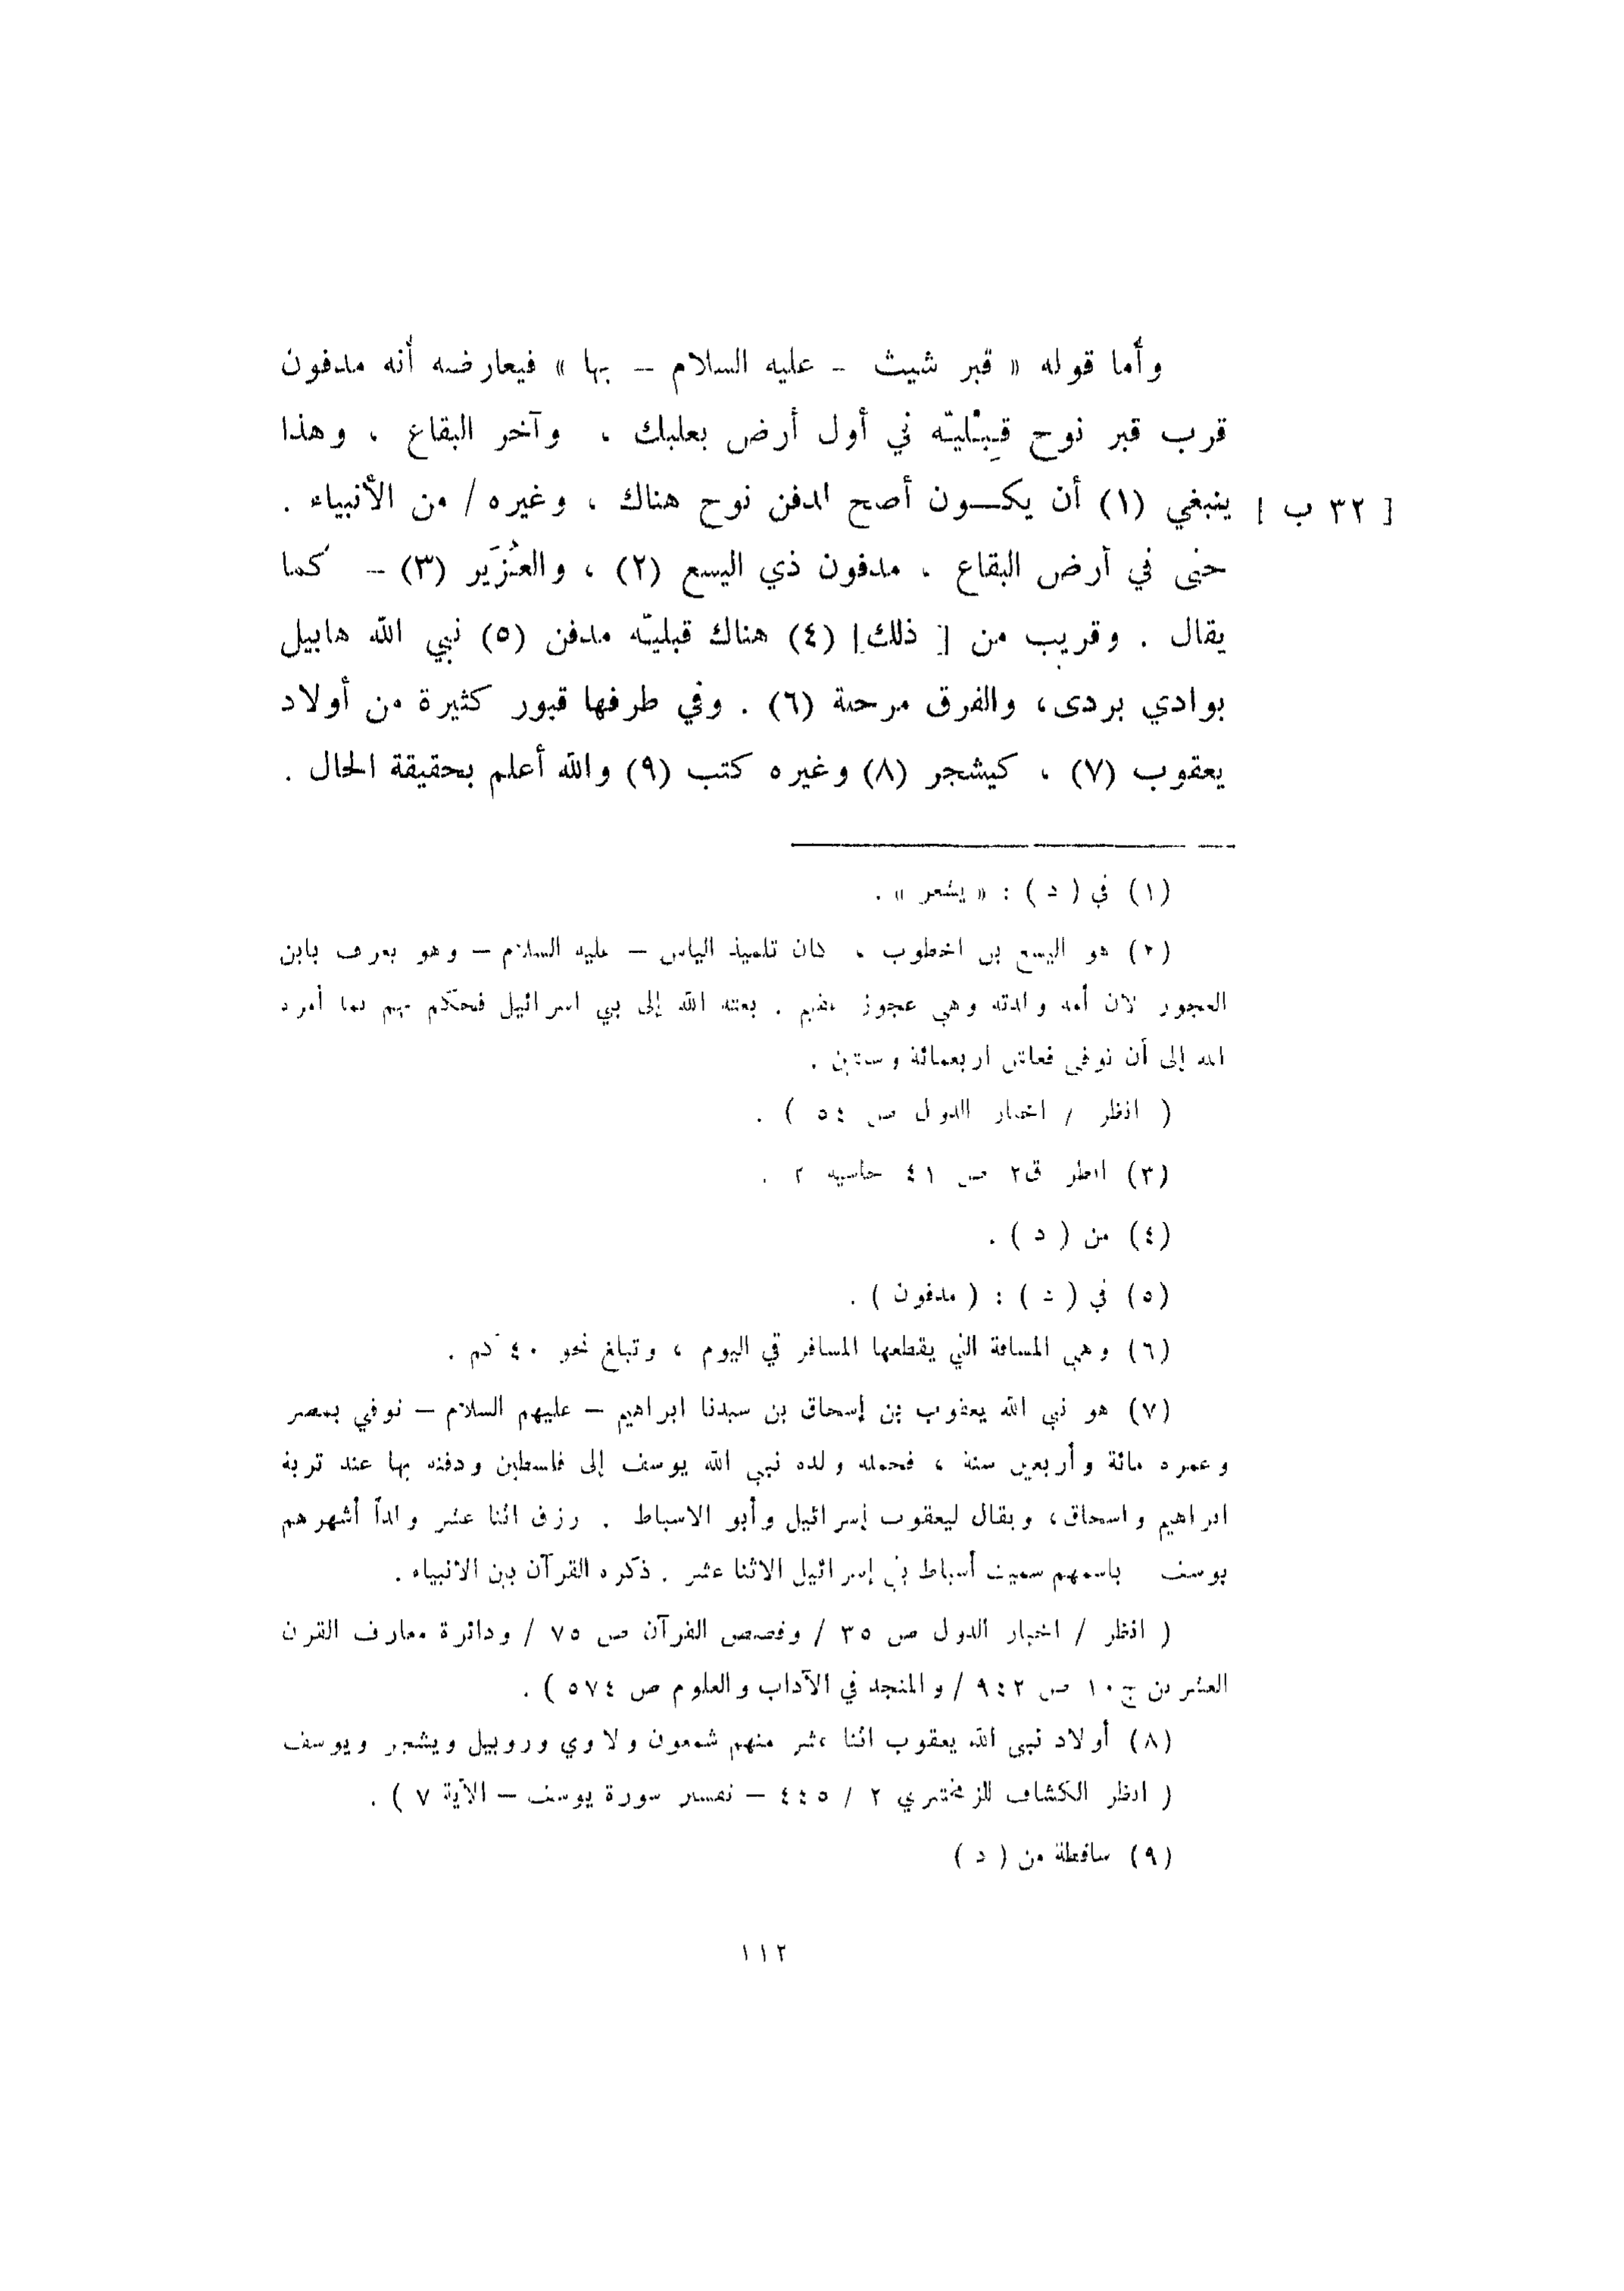 وأما قوله « قبر شيث - عليه السلام – بها » فيعارضه أنه مدفون
قرب قبر نوح قِبْليّه في أول أرض بعلبك ، وآخر البقاع ، وهذا
[ ٣٢ ب ] ينبغي (١) أن يكـــون أصح لمدفن نوح هناك ، وغيره / من الأنبياء .
حتى في أرض البقاع ، مدفون ذي اليسع (٢) ، والعُزَير (٣) – كما
يقال . وقريب من [ ذلك ] (٤) هناك قبليّه مدفن (٥) نبي الله هابيل
بوادي بردى، والفرق مرحلة (٦) . وفي طرفها قبور كثيرة من أولاد
يعقوب (٧) ، كيشجر (٨) وغيره كتب (٩) والله أعلم بحقيقة الحال .
(١) في ( د ) : « يشعر » .
(٢) هو اليسع بن اخطوب ، كان تلميذ الياس – عليه السلام – وهو يعرف بابن
العجوز لان أمه ولدته وهي عجوز عقيم . بعثه الله إلى بني اسرائيل فحكم بهم بما أمره
الله إلى أن توفي فعاش اربعمائة وستين .
( انظر / اخبار الدول ص ٥٤ ) .
(٣) انظر ق٢ ص ٤١ حاشيه ٢ .
(٤) من ( د ) .
(٥) في ( د ) : ( مدفون ) .
(٦) وهي المسافة التي يقطعها المسافر في اليوم ، وتبلغ نحو ٤٠ كم .
(٧) هو نبي الله يعقوب بن إسحاق بن سيدنا ابراهيم – عليهم السلام – توفي بمصر
وعمره مائة وأربعين سنة ، فحمله ولده نبي الله يوسف إلى فلسطين ودفنه بها عند تربة
ابراهيم واسحاق، ويقال ليعقوب إسرائيل وأبو الاسباط . رزق اثنا عشر ولداً أشهرهم
يوسف باسمهم سميت أسباط بني إسرائيل الاثنا عشر . ذكره القرآن بين الانبياء .
( انظر / اخبار الدول ص ٣٥ / وقصص القرآن ص ٧٥ / ودائرة معارف القرن
العشرين ج١٠ ص ٩٤٢ / والمنجد في الآداب والعلوم ص ٥٧٤ ) .
(٨) أولاد نبي الله يعقوب اثنا عشر منهم شمعون ولاوي وروبيل ويشجر ويوسف
( انظر الكشاف للزمخشري ٢ / ٤٤٥ – تفسير سورة يوسف – الآية ٧ ) .
(٩) ساقطة من ( د )
١١٢